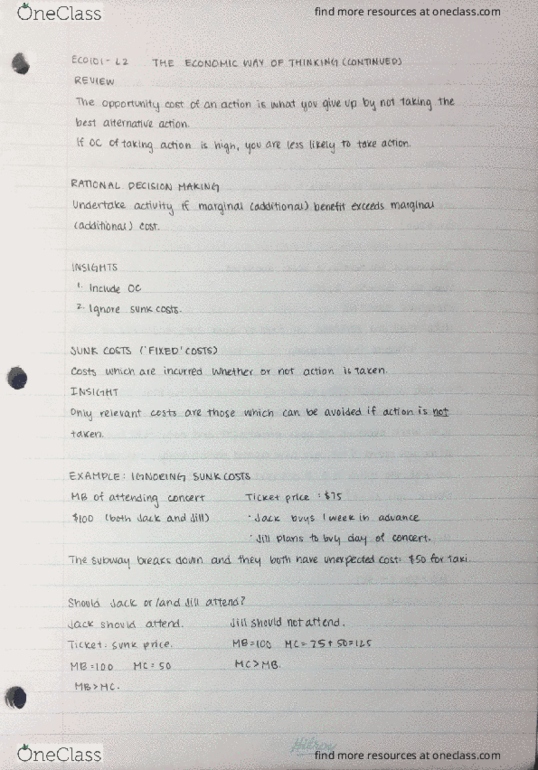 OneClass
find more resources at oneclass.com
ECO101 - L2 THE ECONOMIC WAY OF THINKING (CONTINUED)
REVIEW
The opportunity cost of an action is what you give up by not taking the
best alternative action.
If OC of taking action is high, you are less likely to take action.
RATIONAL DECISION MAKING
Undertake activity if marginal (additional) benefit exceeds marginal
(additional) cost.
INSIGHTS
1. Include OC
2. Ignore sunk costs.
SUNK COSTS ('FIXED' COSTS)
Costs which are incurred whether or not action is taken.
INSIGHT
Only relevant costs are those which can be avoided if action is not
taken.
EXAMPLE: IGNORING SUNK COSTS
MB of attending concert Ticket price : $75
$100 (both Jack and Jill) · Jack buys 1 week in advance
· Jill plans to buy day of concert.
The subway breaks down and they both have unexpected cost: $50 for taxi.
Should Jack or/and Jill attend?
Jack should attend. Jill should not attend.
Ticket: sunk price. MB=100 MC= 75+50=125
MB=100 MC=50 MC>MB.
MB>MC.
Hilroy
OneClass
find more resources at oneclass.com